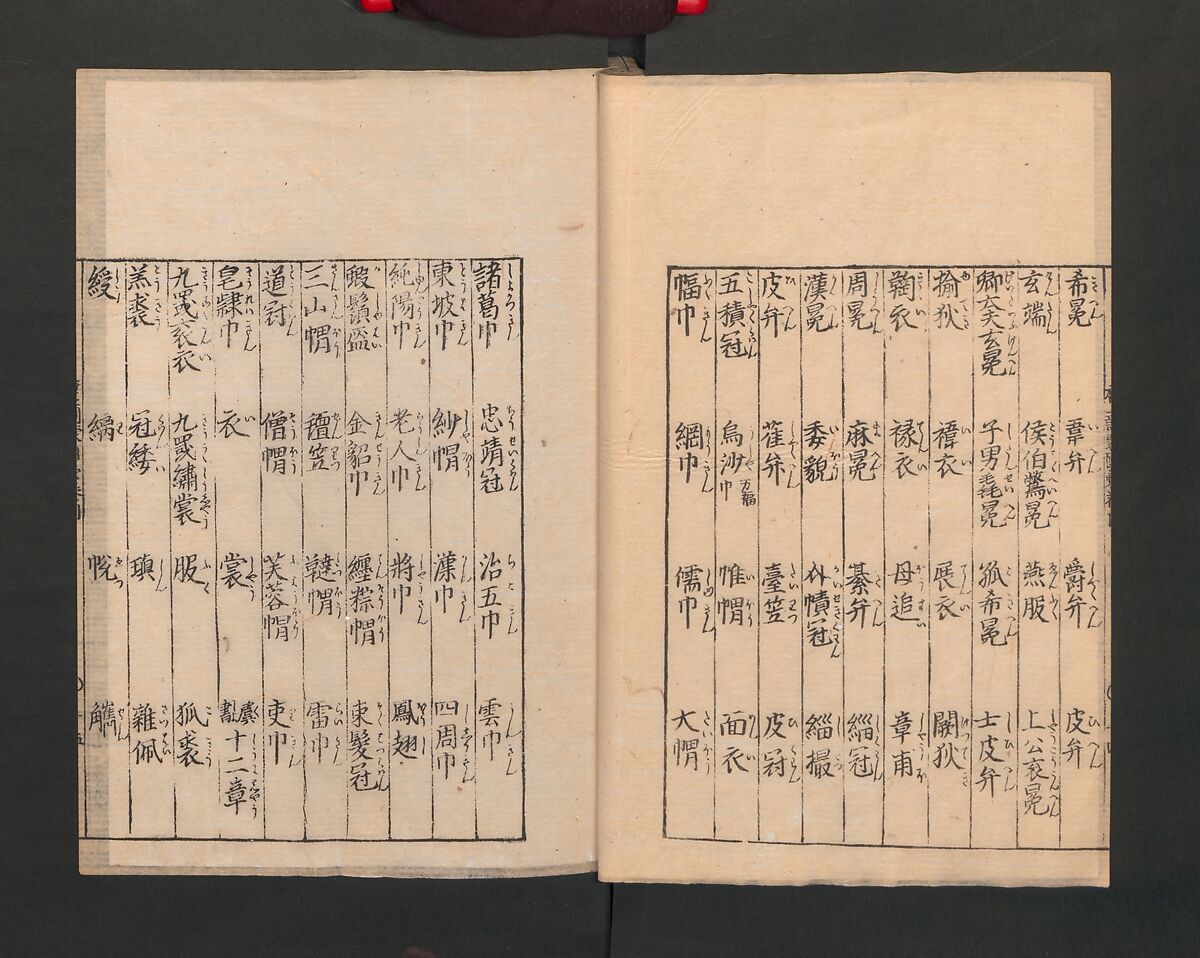 希冕 韋弁 爵弁 皮弁
玄端 侯伯鷩冕 燕服 上公袞冕
卿大夫玄冕 子男毳冕 孤希冕 士皮弁
揄狄 褘衣 展衣 闕狄
鞠衣 褖衣 母追 章甫
周冕 麻冕 綦弁 緇冠
漢冕 委貌 幘冠 緇撮
皮弁 雀弁 臺笠 皮冠
五積冠 烏沙巾 方幅 帷帽 面衣
幅巾 網巾 儒巾 大帽
諸葛巾 忠靖冠 治五巾 雲巾
東坡巾 紗帽 漢巾 四周巾
純陽巾 老人巾 將巾 鳳翅
蝦鬚盔 金貂巾 纏椶帽 束髮冠
三山帽 氊笠 韃帽 雷巾
道冠 僧帽 芙蓉帽 吏巾
皂隸巾 衣 裳 虞書十二章
九罭袞衣 九罭繡裳 服 狐裘
羔裘 冠緌 瑱 雜佩
綬 縭 帨 觿